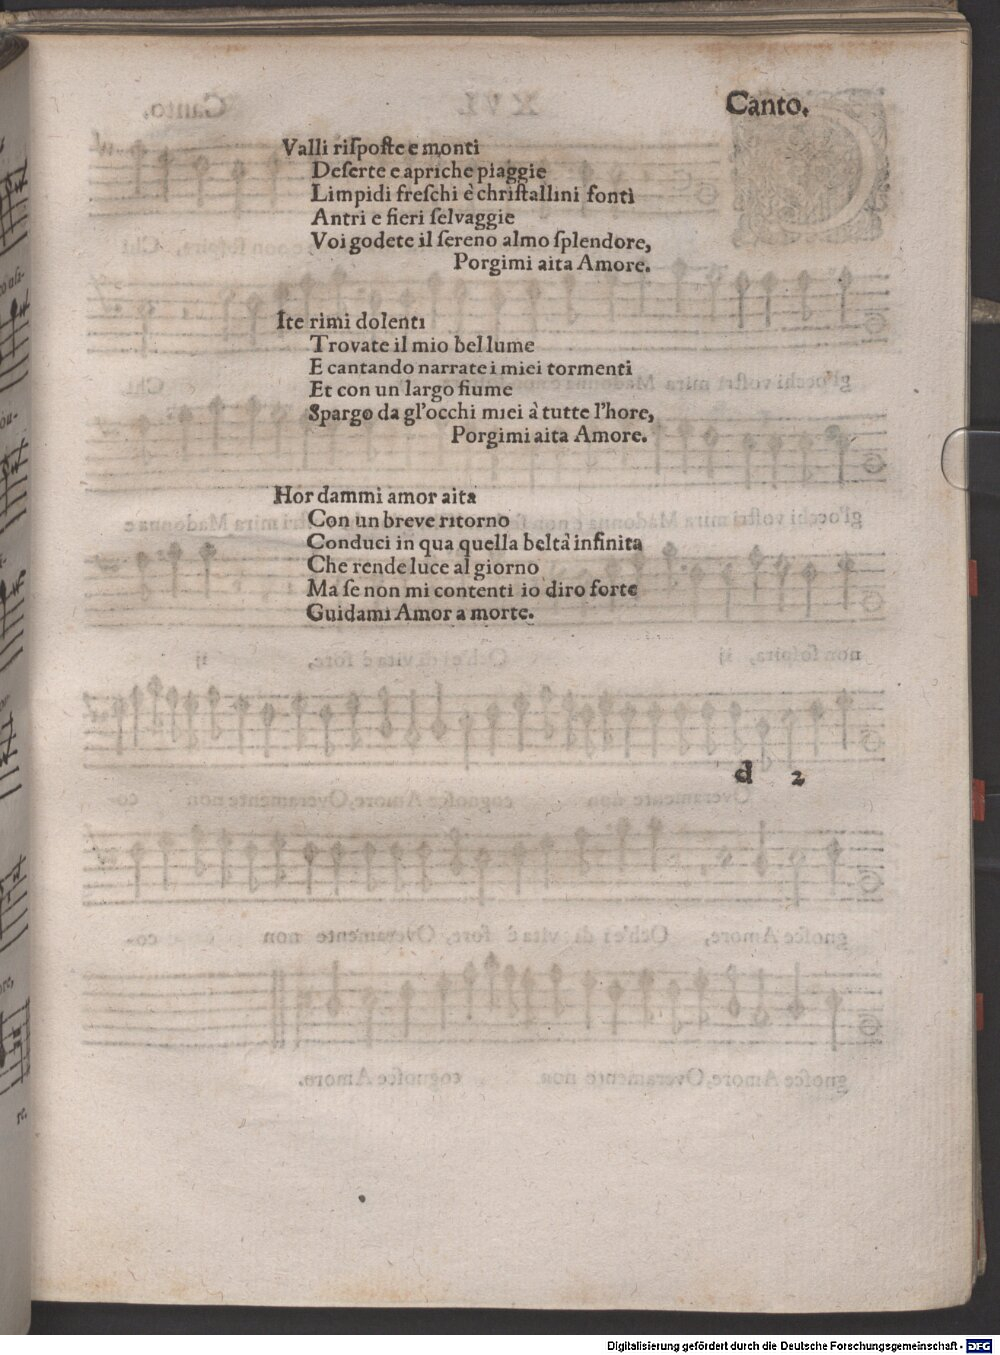 Canto.
Valli risposte e monti
Deserte e apriche piaggie
Limpidi freschi è christallini fonti
Antri e fieri selvaggie
Voi godete il sereno almo splendore,
Porgimi aita Amore.
Ite rimi dolenti
Trovate il mio bel lume
E cantando narrate i miei tormenti
Et con un largo fiume
Spargo da gl'occhi miei à tutte l'hore,
Porgimi aita Amore.
Hor dammi amor aita
Con un breve ritorno
Conduci in qua quella beltà infinita
Che rende luce al giorno
Ma se non mi contenti io diro forte
Guidami Amor a morte.
d 2
Digitalisierung gefördert durch die Deutsche Forschungsgemeinschaft - DFG